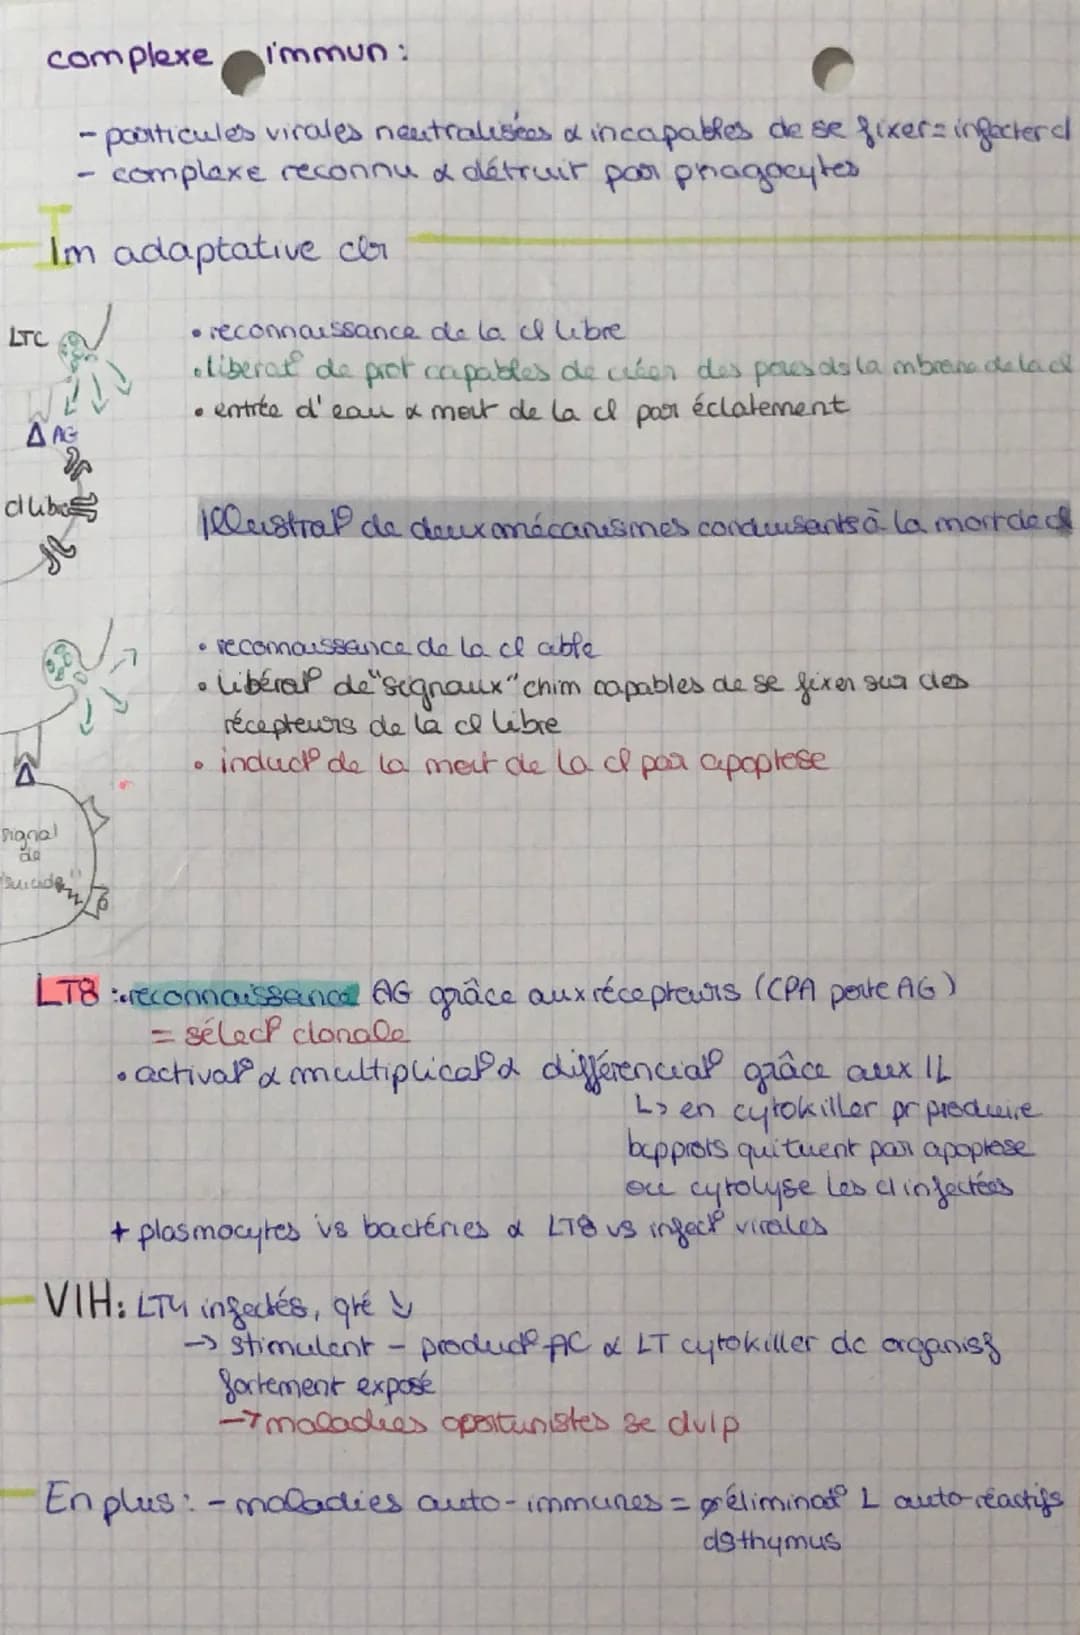 complexe immun :
- particules virales neutralisées & incapables de se fixer = infecter cl
- complexe reconnu & détruit par phagocytes
Im adaptative clr
LTC
• reconnaissance de la cl libre
• liberat° de prot capables de créer des pores ds la mbrane de la cl
• entrée d'eau & mort de la cl par éclatement
AG
cl libre
Illustrat° de deux mécanismes conduisants à la mort de cl
• reconnaissance de la cl cible
• libérat° de "signaux" chim capables de se fixer sur des
récepteurs de la cl libre
• induct° de la mort de la cl par apoptose
signal
de
"suicide"
LT8 : reconnaissance AG grâce aux récepteurs (CPA porte AG)
= sélect° clonale
• activat° & multiplicat° & différenciat° grâce aux IL
↳ en cytokiller pr produire
bcp prots qui tuent par apoptose
ou cytolyse les cl infectées
+ plasmocytes vs bactéries & LT8 vs infect° virales
VIH : LT4 infectés, qté ↓
→ stimulent - product° AC & LT cytokiller dc organism
fortement exposé
→ maladies oportunistes se dvlp
En plus : - maladies auto-immunes = éliminat° L auto-réactifs
ds thymus